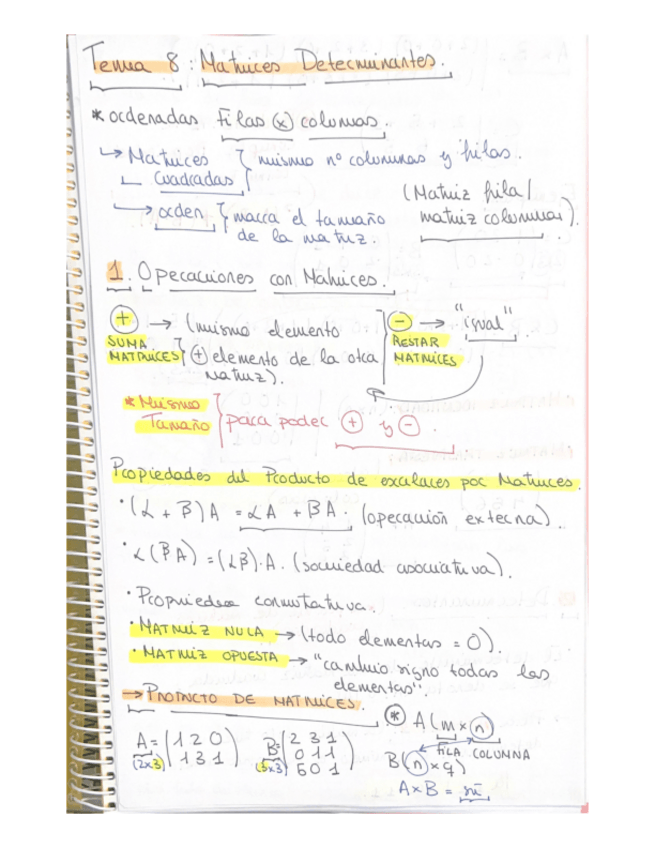 Tema 8: Matrices Determinantes.
* ordenadas Filas (x) columnas.
↳ Matrices cuadradas { mismo nº columnas y filas.
(Matriz fila/ matriz columna).
→ orden { marca el tamaño de la matriz.
1. Operaciones con Matrices.
+ SUMA MATRICES → (mismo elemento + elemento de la otra matriz).
- RESTAR MATRICES → "igual".
* Mismo Tamaño } para poder + y -.
Propiedades del Producto de escalares por Matrices.
· (α + β)A = αA + βA. (operación externa).
· α(βA) = (αβ)·A. (sociedad asociativa).
· Propiedad conmutativa.
· MATRIZ NULA → (todo elementos = 0).
· MATRIZ OPUESTA → "cambio signo todos los elementos"
→ PRODUCTO DE MATRICES.
* A(m × n)
FILA COLUMNA
B(n × q)
A × B =
A = (1 2 0
1 3 1)
(2x3)
B = (2 3 1
0 1 1
5 0 1)
(3x3)